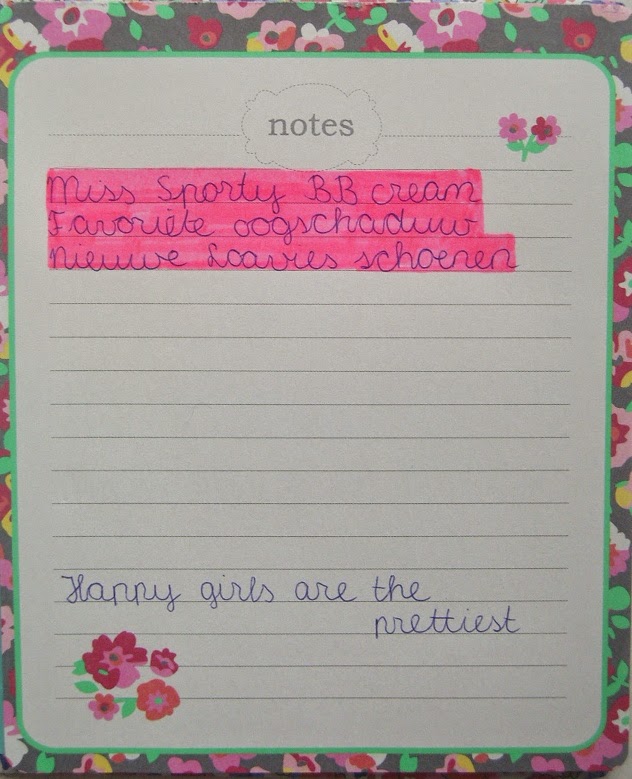 notes
Miss Sporty BB cream
Favoriete oogschaduw
Nieuwe Loavies schoenen
Happy girls are the
prettiest